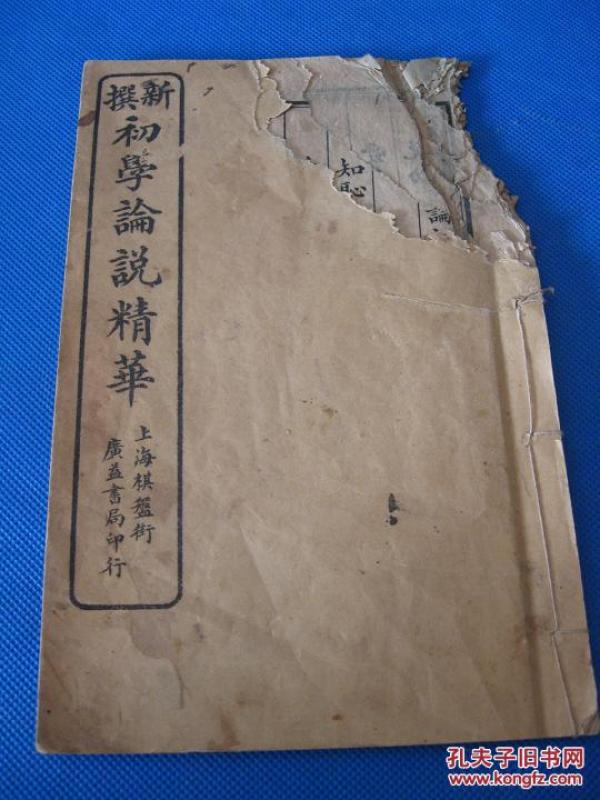 新撰
初學論説精華
上海棋盤街
廣益書局印行
論
知恥
孔夫子旧书网
www.kongfz.com